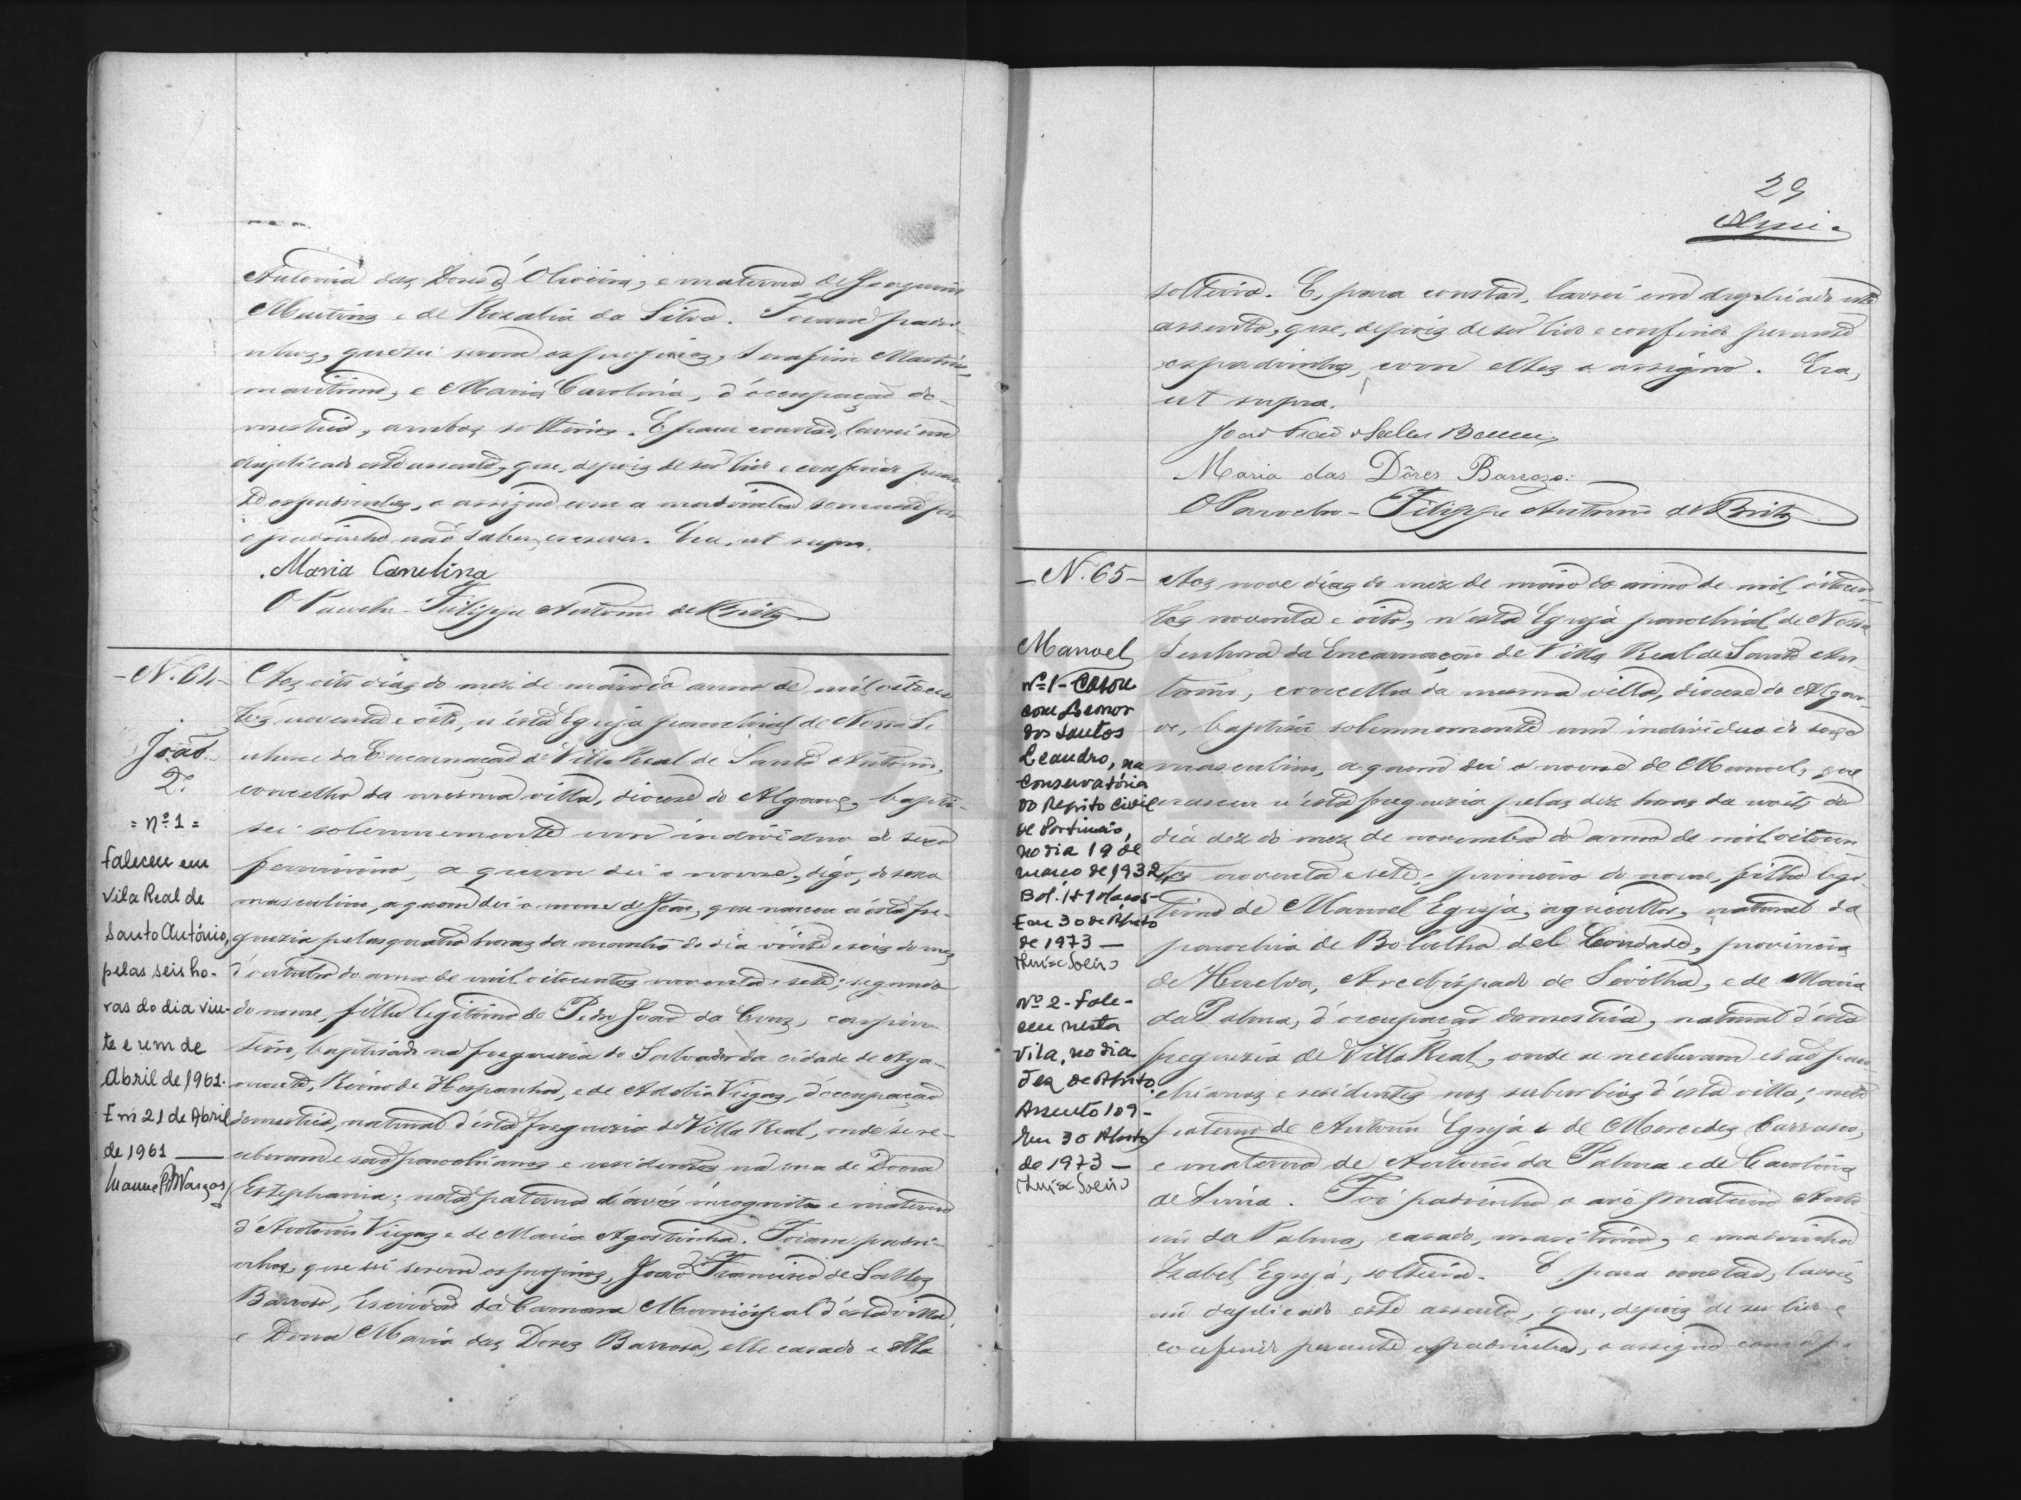 Antonia das Dores d'Oliveira, e materno de Joaquim
Martins e de Rozalia da Silva. Foram padri-
nhos, que sei serem os proprios, Serafim Martins,
maritimo, e Maria Carolina, d'occupação do-
mestica, ambos solteiros. E para constar, lavrei em
duplicado este assento, que, depois de ser lido e conferido peran-
te os padrinhos, o assigno com a madrinha somente por
o padrinho não saber escrever. Era, ut supra.
Maria Carolina
O Parocho - Filippe Antonio de Brito
- N. 64 -
João
2º
= nº 1 =
Faleceu em
Vila Real de
Santo António,
pelas seis ho-
ras do dia vin-
te e um de
Abril de 1961.
Em 21 de Abril
de 1961 —
Aos oito dias do mez de maio do anno de mil oitocen-
tos noventa e oito, n'esta Egreja parochial de Nossa Se-
nhora da Encarnação de Villa Real de Santo Antonio,
concelho da mesma villa, diocese do Algarve, bapti-
sei solemnemente um individuo do sexo
feminino, a quem dei o nome, digo, do sexo
masculino, a quem dei o nome de João, que nasceu n'esta fre-
guezia pelas quatro horas da manhã do dia vinte e seis do mez
d'outubro do anno de mil oitocentos noventa e sete; segundo
do nome, filho legitimo de Pedro João da Cruz, carpin-
teiro, baptisado na freguezia do Salvador da cidade de Aya-
monte, Reino de Hespanha, e de Adelia Viegas, d'occupação
domestica, natural d'esta freguezia de Villa Real, onde se re-
ceberam e são parochianos e residentes na rua de Dona
Estephania; neto paterno d'avós incognitos e materno
d'Antonio Viegas e de Maria Agostinha. Foram padri-
nhos, que sei serem os proprios, João Francisco de Salles
Barroso, Escrivão da Camara Municipal d'esta villa,
e Dona Maria das Dores Barroso, elle casado e ella
29
solteira. E, para constar, lavrei em duplicado este
assento, que, depois de ser lido e conferido perante
os padrinhos, com elles o assigno. Era,
ut supra.
João Franco de Salles Barroso
Maria das Dôres Barrozo.
O Parocho - Filippe Antonio de Brito
- N. 65 -
Manoel
Nº 1 - Casou
com Leonor
dos Santos
Leandro, na
Conservatória
do Registo Civil
de Portimão,
no dia 19 de
março de 1932
Em 30 de Agosto
de 1973 —
Nº 2 - Fale-
ceu nesta
Vila, no dia
dez de Agosto.
Assento 109 -
Em 30 Agosto
de 1973 —
Aos nove dias do mez de maio do anno de mil oitocen-
tos noventa e oito, n'esta Egreja parochial de Nossa
Senhora da Encarnação de Villa Real de Santo An-
tonio, concelho da mesma villa, diocese do Algar-
ve, baptisei solemnemente um individuo do sexo
masculino, a quem dei o nome de Manoel, que
nasceu n'esta freguezia pelas dez horas da noite do
dia dez do mez de novembro do anno de mil oitocen-
tos noventa e sete; primeiro do nome, filho legi-
timo de Manoel Egreja, agricultor, natural da
parochia de Bolulhos del Condado, provincia
de Huelva, Arcebispado de Sevilha, e de Maria
da Palma, d'occupação domestica, natural d'esta
freguezia de Villa Real, onde se receberam e são paro-
chianos e residentes nos suburbios d'esta villa; neto
paterno de Antonio Egreja e de Mercedes Carrasco,
e materno de Antonio da Palma e de Carolina
de Lima. Foi padrinho o avô materno Anto-
nio da Palma, casado, maritimo, e madrinha
Izabel Egreja, solteira. E para constar, lavrei
em duplicado este assento, que, depois de ser lido e
conferido perante os padrinhos, o assigno
ADFAR